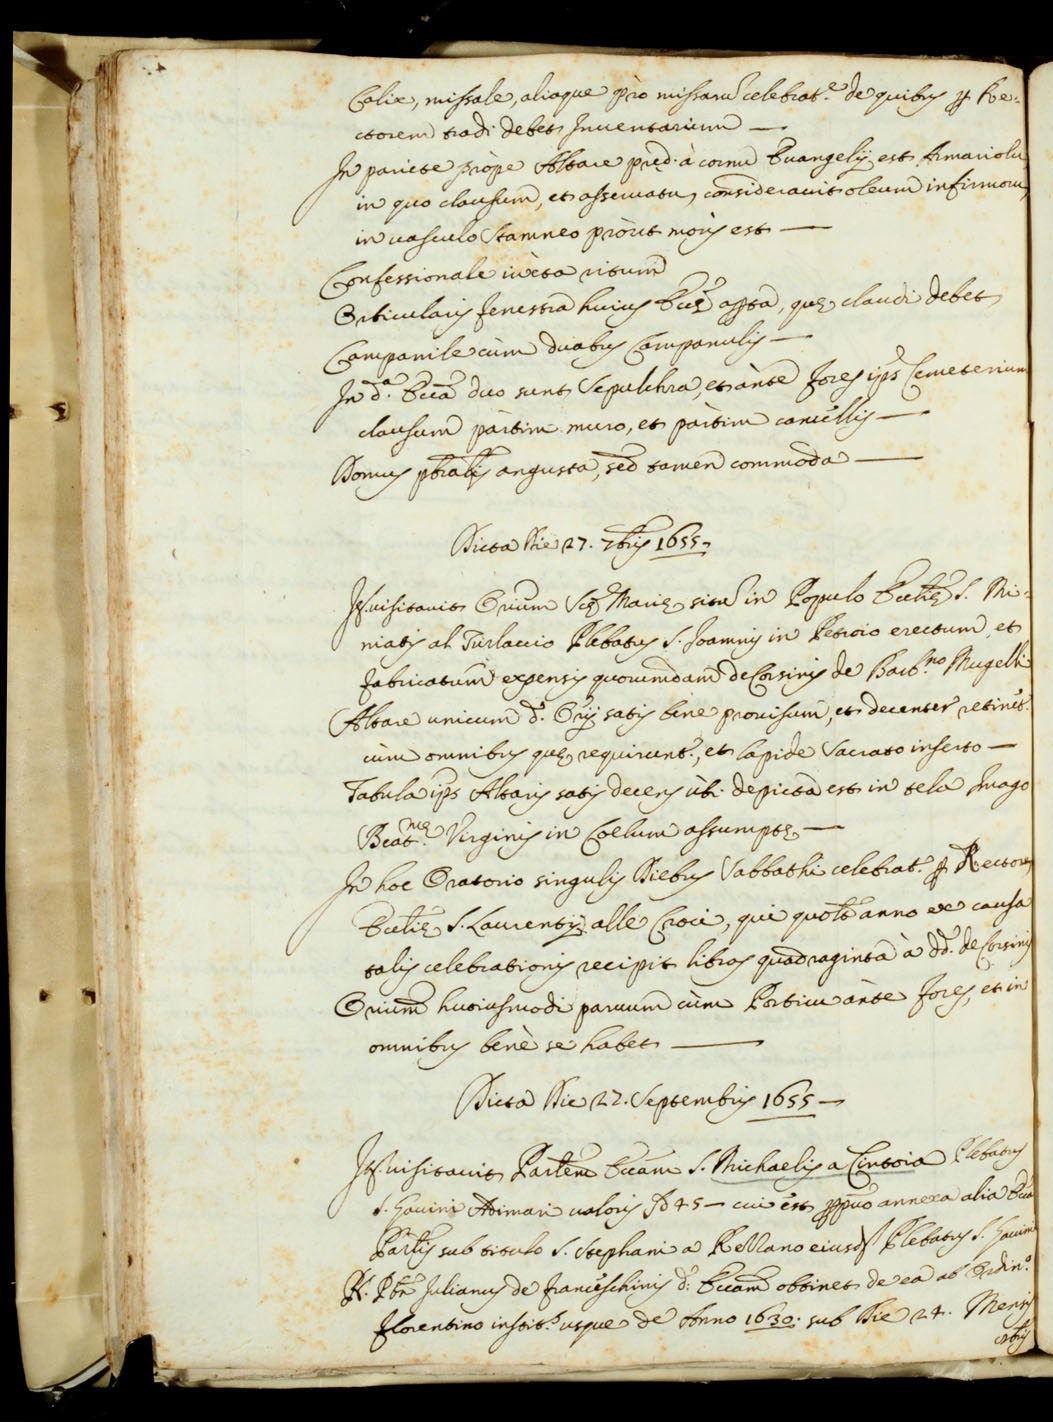 Calix, missale, aliaque pro missaru celebrat.e de quibus per Re-
ctorem tradi debet Inuentarium —
In pariete prope Altare pred. à cornu Euangelij est Armariolu
in quo clausum, et asseruatu consideravit oleum infirmoru
in uasculo stamneo prout moris est —
Confessionale iuxta ritum
Orbicularis fenestra huius Eccę apta, quę claudi debet
Campanile cum duabus Campanulis —
In d.a Ecca duo sunt Sepulchra, et ante fores ips Cemeterium
clausum partim muro, et partim cancellis —
Domus pbralis angusta, sed tamen commoda —
Dicta Die 27. 7bris 1655 —
It. uisitauit Orium Scę Marię situ in Populo Ecclię S. Mi-
niatis al Turlaccio Plebatus S. Joannis in Petroio erectum, et
fabricatum expensis quorumdam de Corsinis de Barb.no Mugelli
Altare unicum d. Orij satis bene prouisum, et decenter retinet.
cum omnibus quę requirunt., et lapide Sacrato inserto —
Tabula ips Altaris satis decens ubi depicta est in tela Imago
Beat.mę Virginis in Coelum assumptę —
In hoc Oratorio singulis Diebus Sabbathi celebrat. per Rectorem
Ecclię S. Laurentij alle Croci, qui quolt anno ex causa
talis celebrationis recipit libras quadraginta à DD. de Corsinis
Orium huiusmodi paruum cum Porticu ante fores, et in
omnibus benè se habet —
Dicta Die 27. Septembris 1655 —
It. uisitauit Parlem Eccam S. Michaelis a Cintoia Plebatus
S. Gauini Adimari ualoris 45 — cui est ppuo annexa alia Ecca
Parlis sub titulo S. Stephani a Rezzano eiusd Plebatus S. Gauini
R. Pbr Julianus de Franceschinis d. Eccam obtinet de ea ab Ordin.o
Florentino instit.s usque de Anno 1630. sub Die 24. Mensis